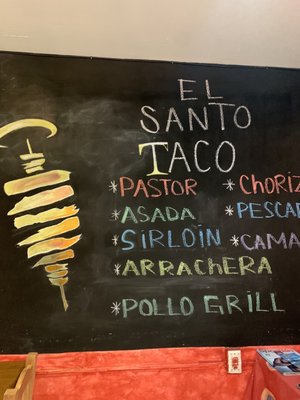 EL
SANTO
TACO
*PASTOR *CHORIZ
*ASADA *PESCA
*SIRLOÏN *CAMA
*ARRACHERA
*POLLO GRILL